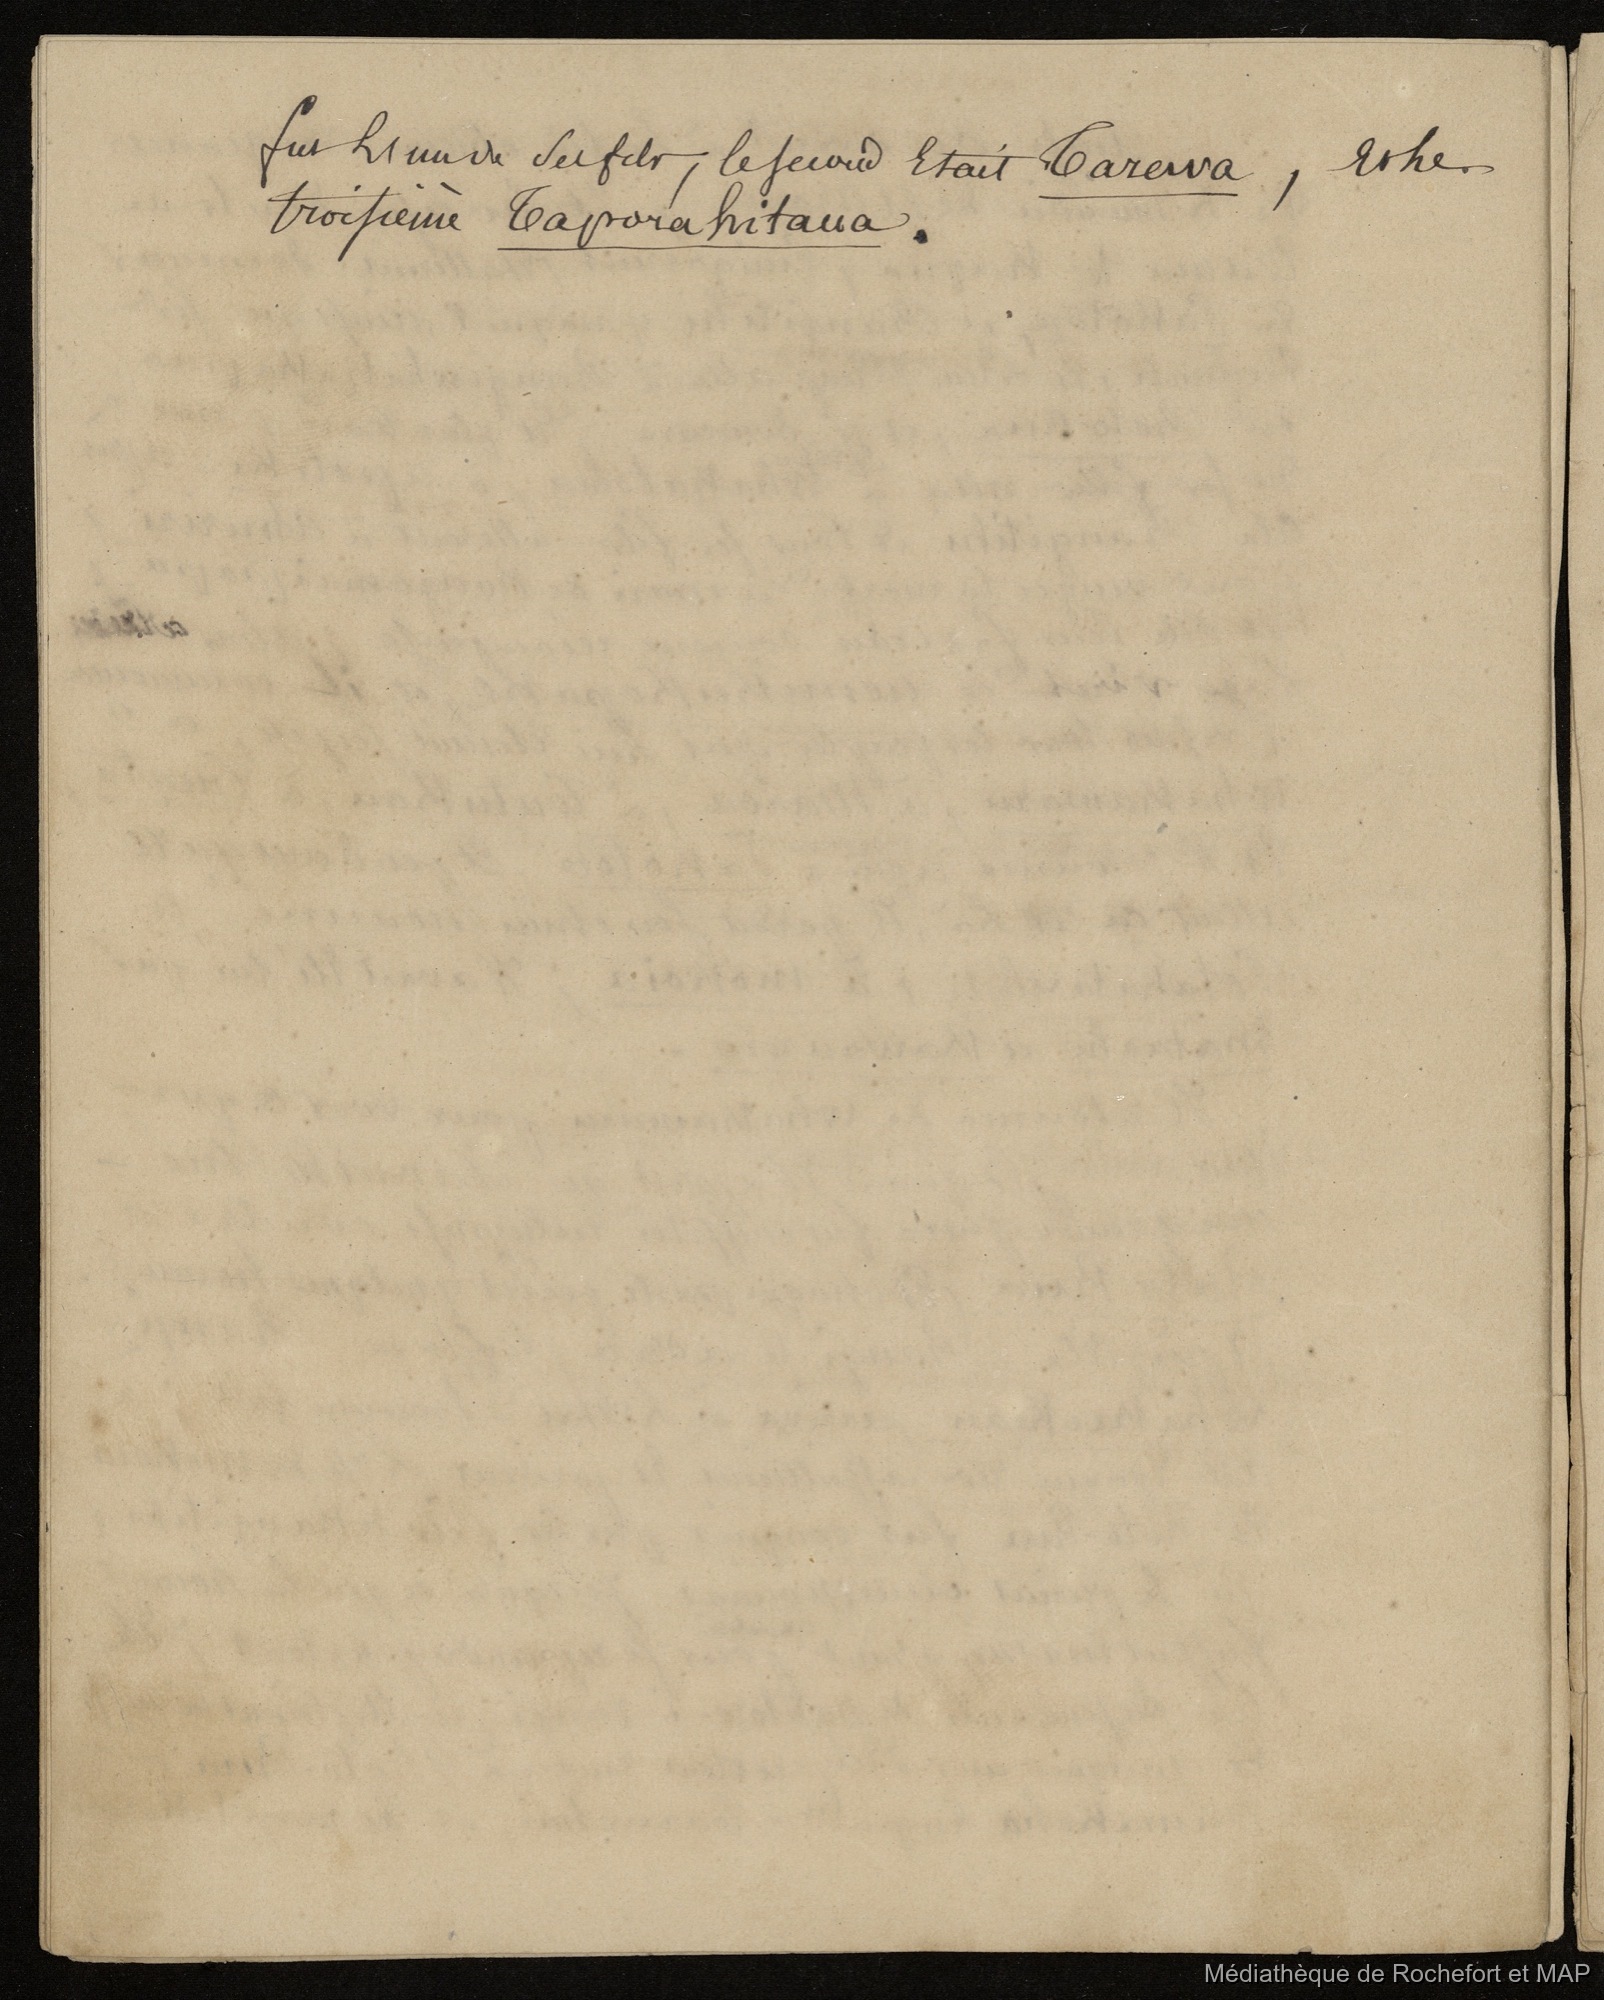 fut l'un de ses fils, le second Etait Tarewa, et le
troisième Taporahitaua.
Médiathèque de Rochefort et MAP